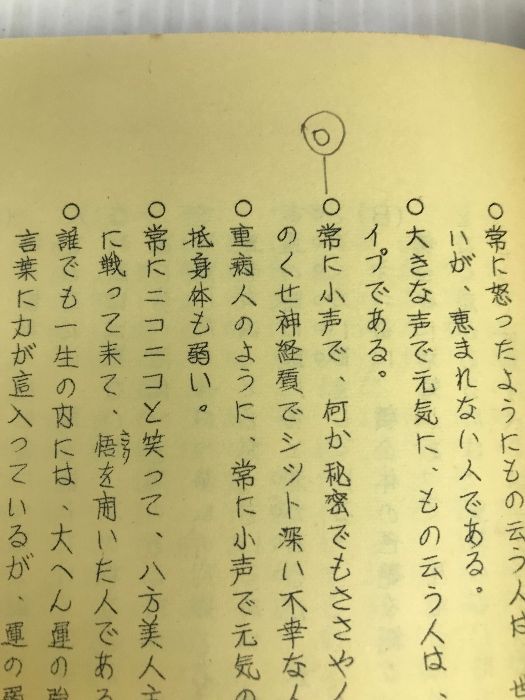 ○常に怒ったようにもの云う人は、
いが、恵まれない人である。
○大きな声で元気に、もの云う人は、
イプである。
○常に小声で、何か秘密でもささやん
のくせ神経質でシット深い不幸な人
○重病人のように、常に小声で元気の
抵身体も弱い。
○常にニコニコと笑って、八方美人
に戦って来て、悟を開いた人である
さとり
○誰でも一生の内には、大へん運の強
言葉に力が這入っているが、運の弱